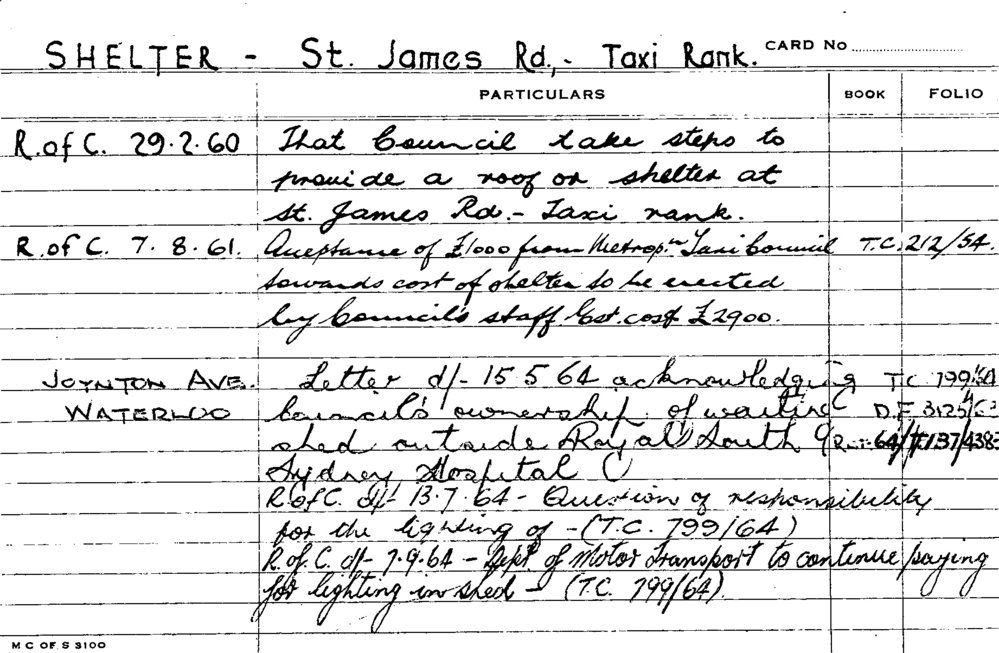 SHELTER - St. James Rd,. Taxi Rank. CARD No
PARTICULARS BOOK FOLIO
R.of C. 29.2.60 That Council take steps to
provide a roof or shelter at
St. James Rd. - Taxi rank.
R.of C. 7.8.61. Acceptance of £1000 from Metropn Taxi Council T.C. 212/54.
towards cost of shelter to be erected
by Council's staff. Est. cost £2900.
JOYNTON AVE. Letter d/- 15 5 64 acknowledging T.C. 799/64
WATERLOO Council's ownership of waiting D.F. 3125/63
shed outside Royal South
Sydney Hospital
R.of C. d/- 13.7.64 - Question of responsibility
for the lighting of - (T.C. 799/64)
R.of C. d/- 7.9.64 - Dept of Motor Transport to continue paying
for lighting in shed - (T.C. 799/64)
M C OF S 3100